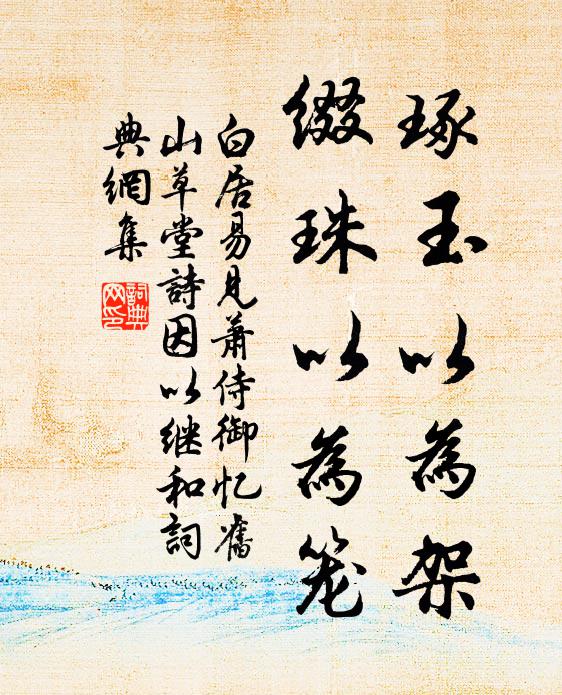 琢玉以為架
綴珠以為笼
白居易見蕭侍御忆舊
山草堂詩因以继和詞
典網集
詞典
网印